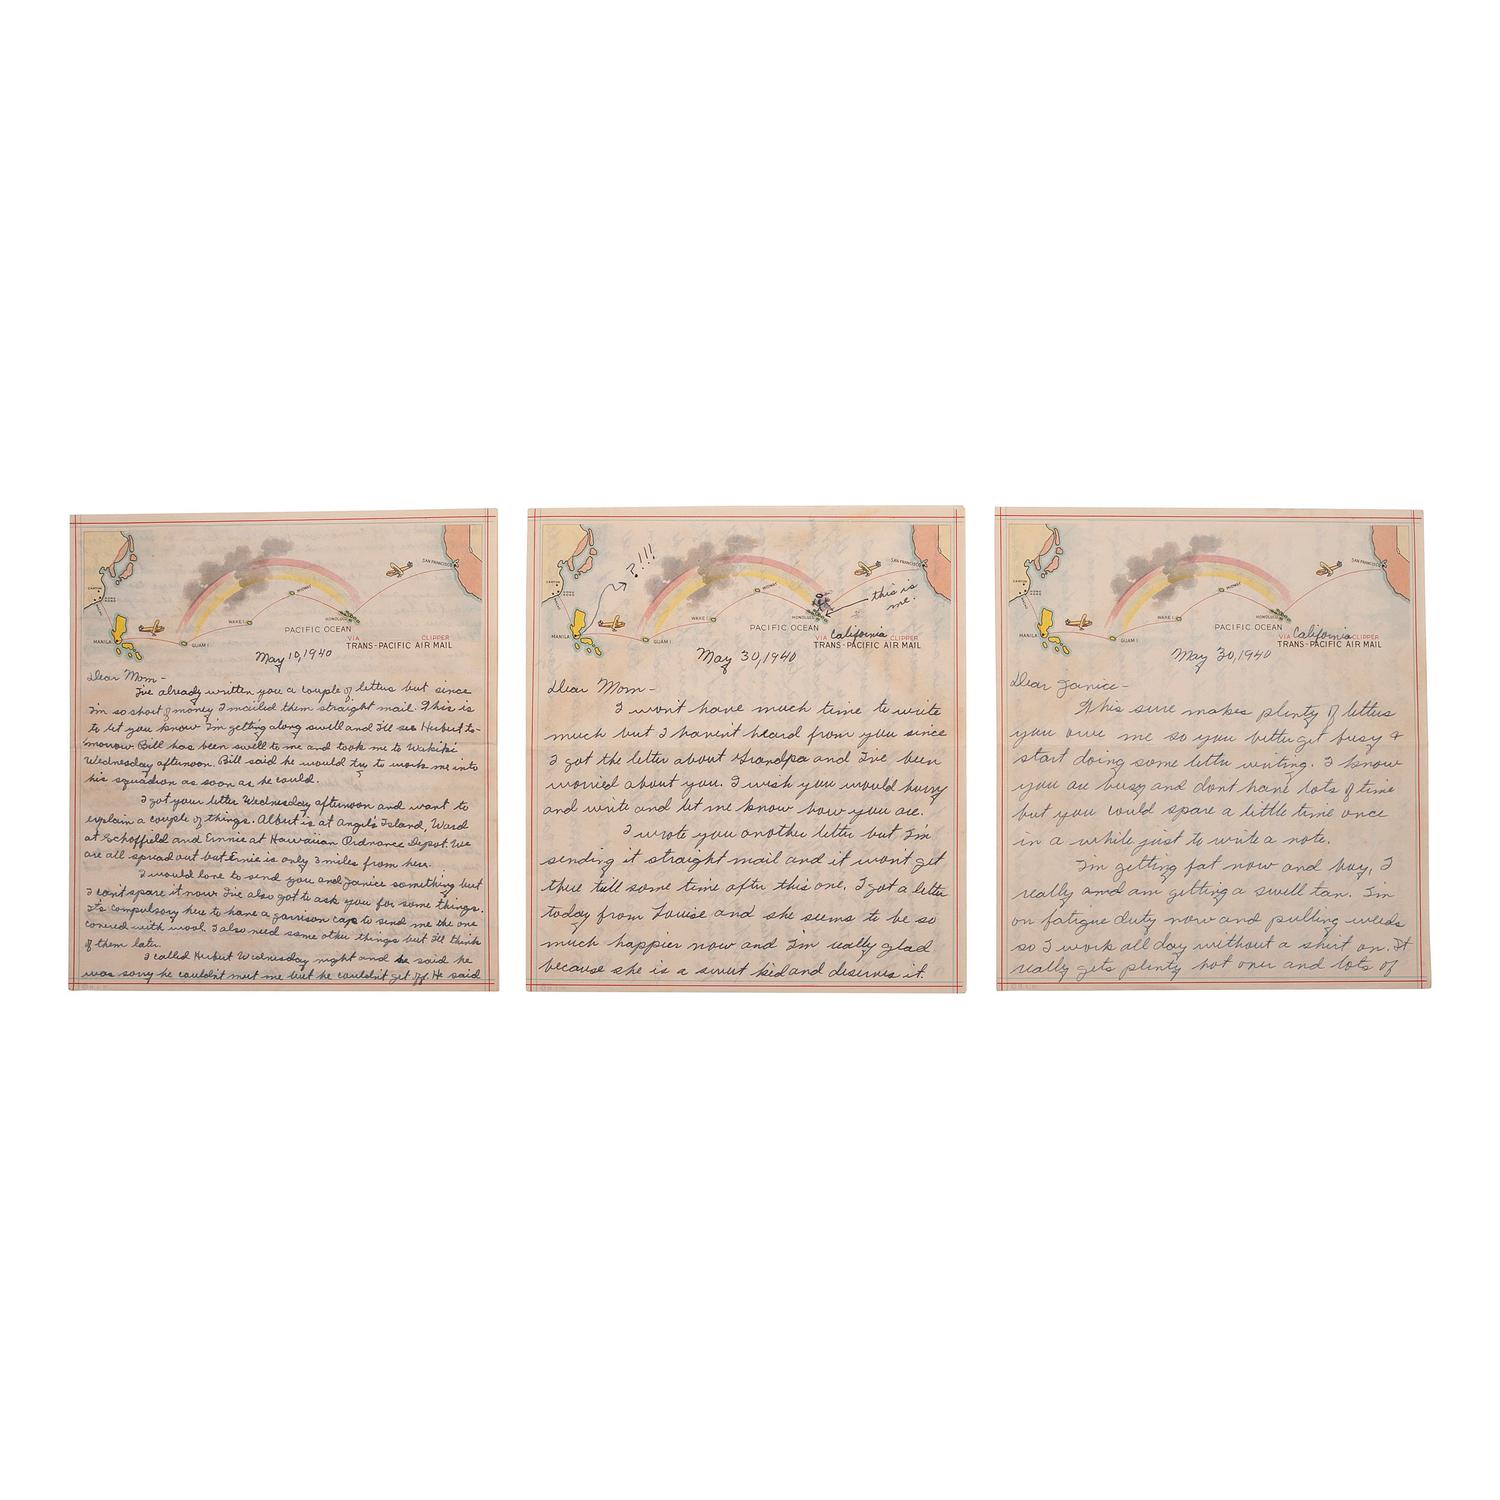 CANTON
HONG KONG
MANILA
GUAM I
WAKE I
MIDWAY
HONOLULU
SAN FRANCISCO
PACIFIC OCEAN
VIA CLIPPER
TRANS-PACIFIC AIR MAIL
May 10, 1940
Dear Mom-
I've already written you a couple of letters but since
I'm so short of money I mailed them straight mail. This is
to let you know I'm getting along swell and I'll see Hubert to-
morrow. Bill has been swell to me and took me to Wakiki
Wednesday afternoon. Bill said he would try to work me into
his squadron as soon as he could.
I got your letter Wednesday afternoon and want to
explain a couple of things. Albert is at Angel's Island, Ward
at Schoffield and Ernnie at Hawaiian Ordnance Depot. We
are all spread out but Ernie is only 3 miles from here.
I would love to send you and Janice something but
I can't spare it now. I've also got to ask you for some things.
It's compulsory here to have a garrison cap so send me the one
covered with wool. I also need some other things but I'll think
of them later.
I called Hubert Wednesday night and he said he
was sorry he couldn't meet me but he couldn't get off. He said
CANTON
HONG KONG
MANILA
GUAM I
WAKE I
MIDWAY
HONOLULU
SAN FRANCISCO
?!!!
this is
me.
PACIFIC OCEAN
VIA California CLIPPER
TRANS-PACIFIC AIR MAIL
May 30, 1940
Dear Mom-
I won't have much time to write
much but I haven't heard from you since
I got the letter about Grandpa and I've been
worried about you. I wish you would hurry
and write and let me know how you are.
I wrote you another letter but I'm
sending it straight mail and it won't get
there till some time after this one. I got a letter
today from Louise and she seems to be so
much happier now and I'm really glad
because she is a sweet kid and deserves it.
CANTON
HONG KONG
MANILA
GUAM I
WAKE I
MIDWAY
HONOLULU
SAN FRANCISCO
PACIFIC OCEAN
VIA California CLIPPER
TRANS-PACIFIC AIR MAIL
May 30, 1940
Dear Janice-
This sure makes plenty of letters
you owe me so you better get busy &
start doing some letter writing. I know
you are busy and dont have lots of time
but you could spare a little time once
in a while just to write a note.
I'm getting fat now and boy, I
really am getting a swell tan. I'm
on fatigue duty now and pulling weeds
so I work all day without a shirt on. It
really gets plenty hot over and lots of